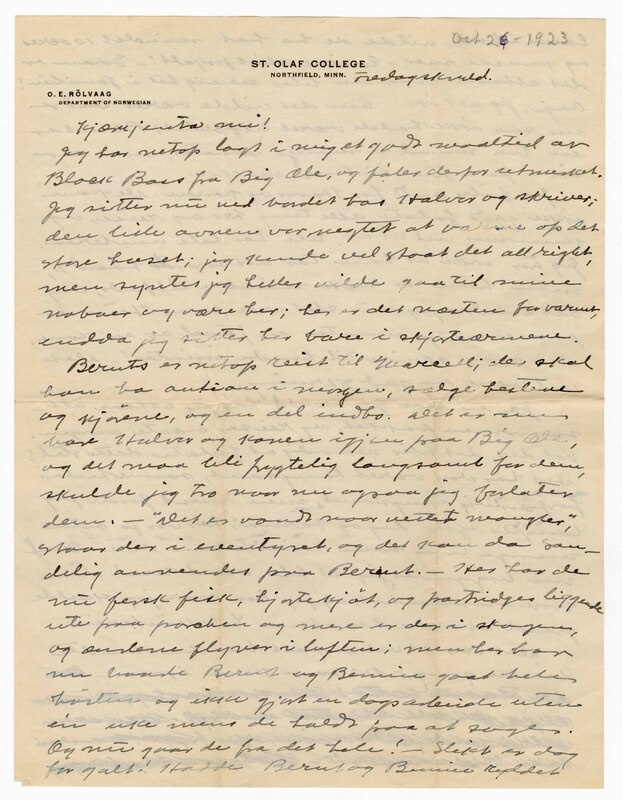 Oct 26 - 1923
ST. OLAF COLLEGE
NORTHFIELD, MINN.
Fredagskveld.
O. E. RÖLVAAG
DEPARTMENT OF NORWEGIAN
Kjærejenta mi!
Jeg har netop lagt i mig et godt maaltid av
Black Bass fra Big Ole, og föler derfor utmerket.
Jeg sitter nu ved bordet hos Halver og skriver;
den lille avnen var negtet at varme op det
store huset; jeg kunde vel staat det allright,
men syntes jeg heller vilde gaa til mine
naboer og være her; her er det næsten for varmt,
endda jeg sitter her bare i skjorteærmene.
Bernts er netop reist til Marcell; der skal
han ha auction i morgen, sælge hestene
og kjörene, og en del indbo. Det er nu
bare Halver og konen igjen paa Big Ole,
og det maa bli frygtelig langsomt for dem,
skulde jeg tro naar nu ogsaa jeg forlater
dem. — "Det er vondt naar vettet mangler",
staar der i eventyret, og det kan da san-
delig anvendes paa Bernt. — Her har de
nu fersk fisk, hjortekjöt, og partridges liggende
ute paa porchen og mere er der i skogen,
og ænderne flyver i luften; men her har
nu baade Bernt og Bennie gaat hele
hösten og ikke gjort en dags arbeide uten
en uke mens de holdt paa at sage.
Og nu gaar de fra det hele! — Slikt er dog
for galt! Hadde Bernt og Bennie